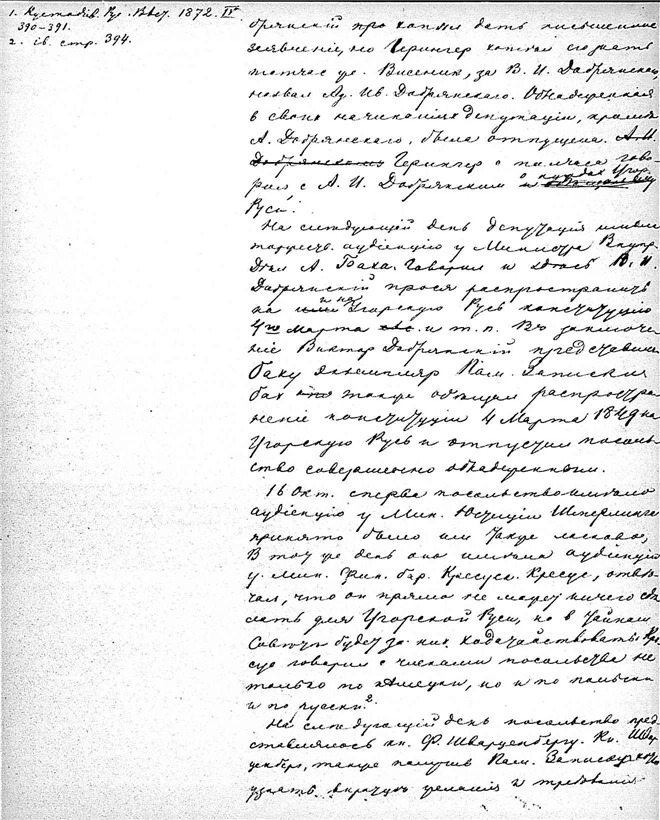 1. Кустодіев. Рус. Вѣст. 1872. IV
390–391.
2. ib. стр. 394.
брянскій про хотѣл дать письменное
заявленіе, но Герингер хотѣл его знать
тотчас же. Висеник, за В. И. Добрянского,
назвал Ад. Ив. Добрянскаго. Обнадеженная
в своих начинаніях депутація, кромѣ
А. Добрянскаго, была отпущена. А. И.
Добрянским Герингер с полчаса гово-
рил с А. И. Добрянским о нуждах Угор.
Руси.
На слѣдующій день депутація имѣла
торжеств. аудіенцію у Министра Внутр.
Дѣл А. Баха. Говорил и здѣсь В. И.
Добрянскій прося распространить
на и на Угорскую Русь конституцію
4го марта и т. п. Въ заключе-
ніе Виктор Добрянскій
Баху экземпляр Пам. Записки
Бах также обѣщал распростра
неніе конституціи 4 Марта 1849 на
Угорскую Русь и отпустил посоль-
ство совершенно обнадеженным.
16 Окт. сперва посольство имѣло
аудіенцію у Мин. Юстиціи Шмерлинга
принято было им также ласково,
В тот же день оно имѣло аудіенцію
у Мин. Фин. бар. Краусса. Краусс, отвѣ-
чал, что он прямо не может ничего сдѣ
лать для Угорской Руси, но в Тайном
Совѣтѣ будет за них ходатайствовать. Кра
усс говорил с членами посольства не
только по нѣмецки, но и по польски
и по русски.2
На слѣдующій день посольство пред
ставлялось кн. Ф. Шварценбергу. Кн. Швар
ценберг, также получив Пам. Записку
узнать вкратцѣ желанія и требованія